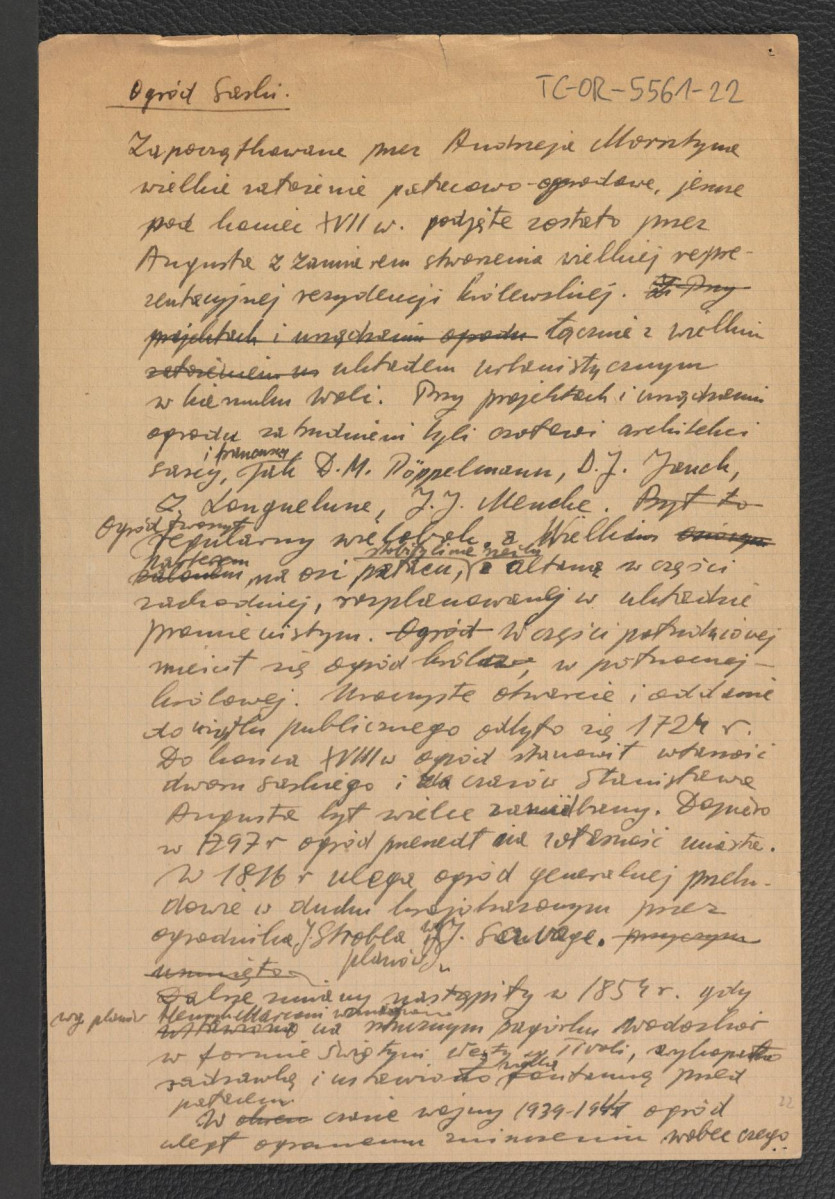 Ogród Saski.
TC-OR-5561-22
Zapoczątkowane przez Andrzeja Morsztyna
wielkie założenie pałacowo-ogrodowe, jeszcze
pod koniec XVII w. podjęte zostało przez
Augusta z zamiarem stworzenia wielkiej repre-
zentacyjnej rezydencji królewskiej. Przy
projektach i urządzeniu ogrodu łącznie z wielkim
założeniem układem urbanistycznym
w kierunku Woli. Przy projektach i urządzeniu
ogrodu zatrudnieni byli czołowi architekci
i francuscy
sascy, jak D.M. Pöppelmann, D.J. Jauch,
Z. Longuelune, J.J. Mencke. Był to
Ogród tworzył
regularny wielobok. z Wielkim
parterem
salonem, na osi pałacu, z altaną w części
zachodniej, rozplanowanej w układzie
promienistym. Ogród W części południowej
mieścił się ogród króla, w północnej –
królowej. Uroczyste otwarcie i oddanie
do użytku publicznego odbyło się 1727 r.
Do końca XVIII w ogród stanowił własność
dworu saskiego i za czasów Stanisława
Augusta był wielce zaniedbany. Dopiero
w 1797 r ogród przeszedł na własność miasta.
W 1816 r ulega ogród generalnej przebu-
dowie w duchu krajobrazowym przez
ogrodnika J. Strobla wg J. Savage. przyczym
planów
usunięto
Dalsze zmiany nastąpiły w 1854 r. gdy
wg planów Henryka Marconi
ustawiono na sztucznym pagórku wodozbiór
w formie świątyni Westy w Tivoli, wykopano
sadzawkę i ustawiono fontannę przed
pałacem
W okresie czasie wojny 1939-1945 ogród
uległ ogromnemu zniszczeniu wobec czego
22